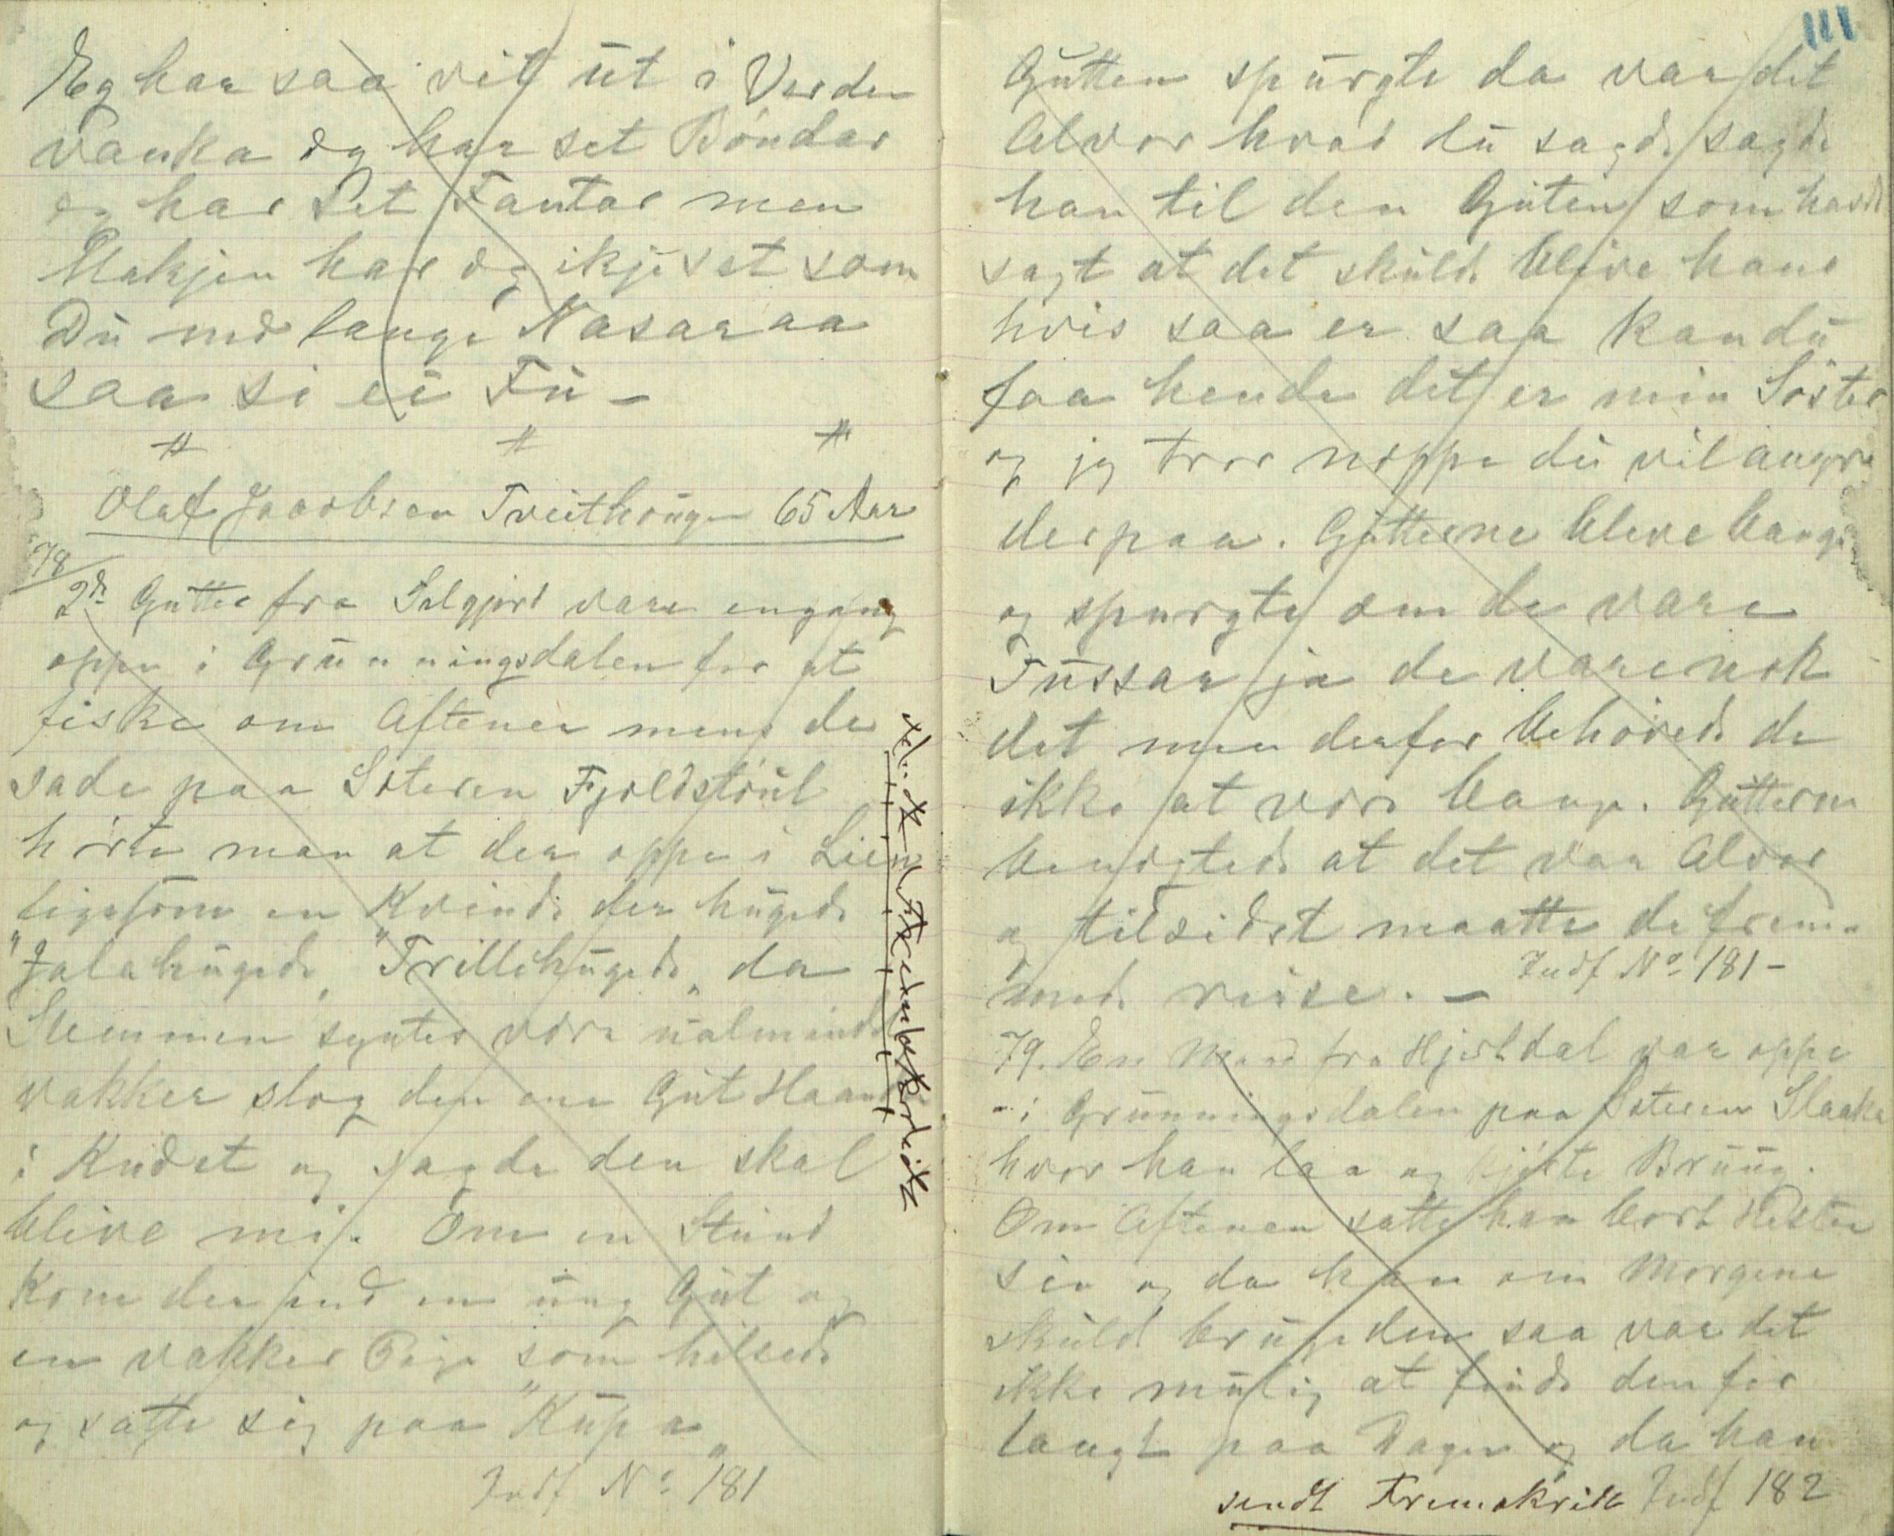 Eg har saa vit ut i Verden
Vanka og har set Bøndar
eg har Set Fantar men
Makjen har eg ikje set som
Du med lange Nasar aa
saa si ei Fu –
Olaf Jacobsen Tveithaugen 65 Aar
78
2de Gutter fra Selgjord vare engang
oppe i Grunningsdalen for at
fiske om Aftenen mens de
sade paa Sæteren Fjoldstøul
hørte man at der oppe i Lien
ligesom en Kvinde der hugede
"Jalahugede" "Trillehugede" da
Stemmen syntes være ualmindel
vakker slog den ene Gut Haanden
i Knæet og sagde den skal
blive mi. Om en Stund
kom der ind en ung Gut og
en vakker Pige som hilsede
og satte sig paa "Kup a
Indf No 181
111
Gutten spurgte da var det
Alvor hvad du sagde sagde
han til den Guten som havde
sagt at det skulde blive hans
hvis saa er saa kan du
faa hende det er min Søster
og jeg tror neppe du vil angre
derpaa. Gutterne bleve bange
og spurgte om de vare
Tussar ja de vare nok
det men derfor behøvede de
ikke at være bange. Gutterne
benægtede at det var Alvor
og tilsidst maatte de frem-
mede reise. –
Indf No 181 –
79. En Mand fra Hjertdal var oppe
i Grunningsdalen paa Sæteren Slaaka
hvor han laa og kjørte Bruug.
Om Aftenen satte han bort Hesten
sin og da han om Morgene
skulde bruge den saa var det
ikke mulig at finde den før
langt paa Dagen og da han
sendt Fremskridt Indf 182